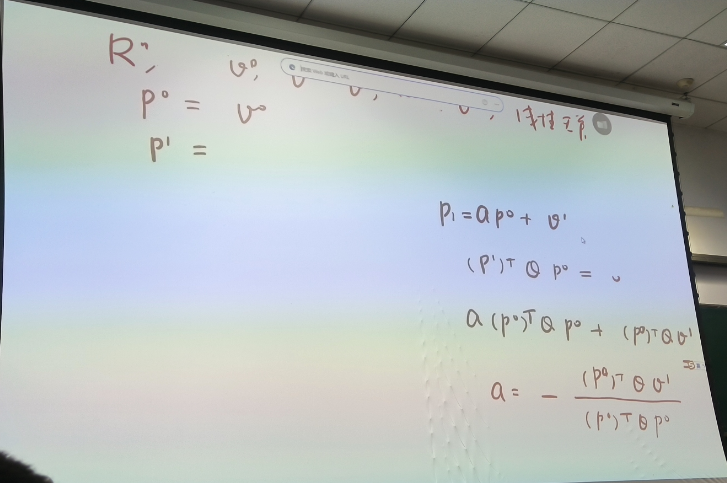 Rⁿ, v⁰, v v, ... v, 线性无关
p⁰ = v⁰
p¹ =
p₁ = a p⁰ + v¹
(p¹)ᵀ Q p⁰ = 0
a (p⁰)ᵀ Q p⁰ + (p⁰)ᵀ Q v¹
=0
a = - (p⁰)ᵀ Q v¹ / (p⁰)ᵀ Q p⁰